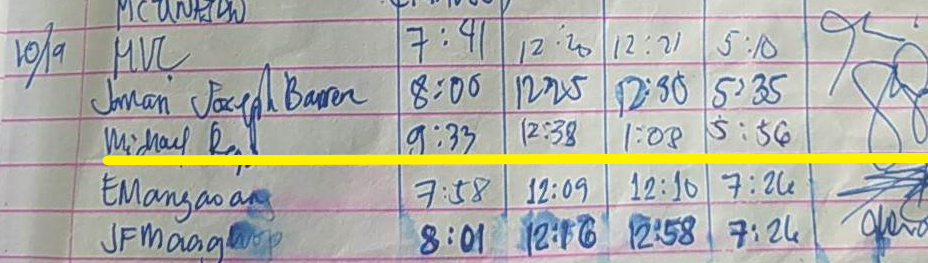 10/9 MVC 7:41 12:20 12:21 5:10
Joman Joseph Barrera 8:00 12:25 12:30 5:35
Michael 9:33 12:38 1:08 5:56
EMangaoang 7:58 12:09 12:10 7:26
JFMaag 8:01 12:16 12:58 7:26